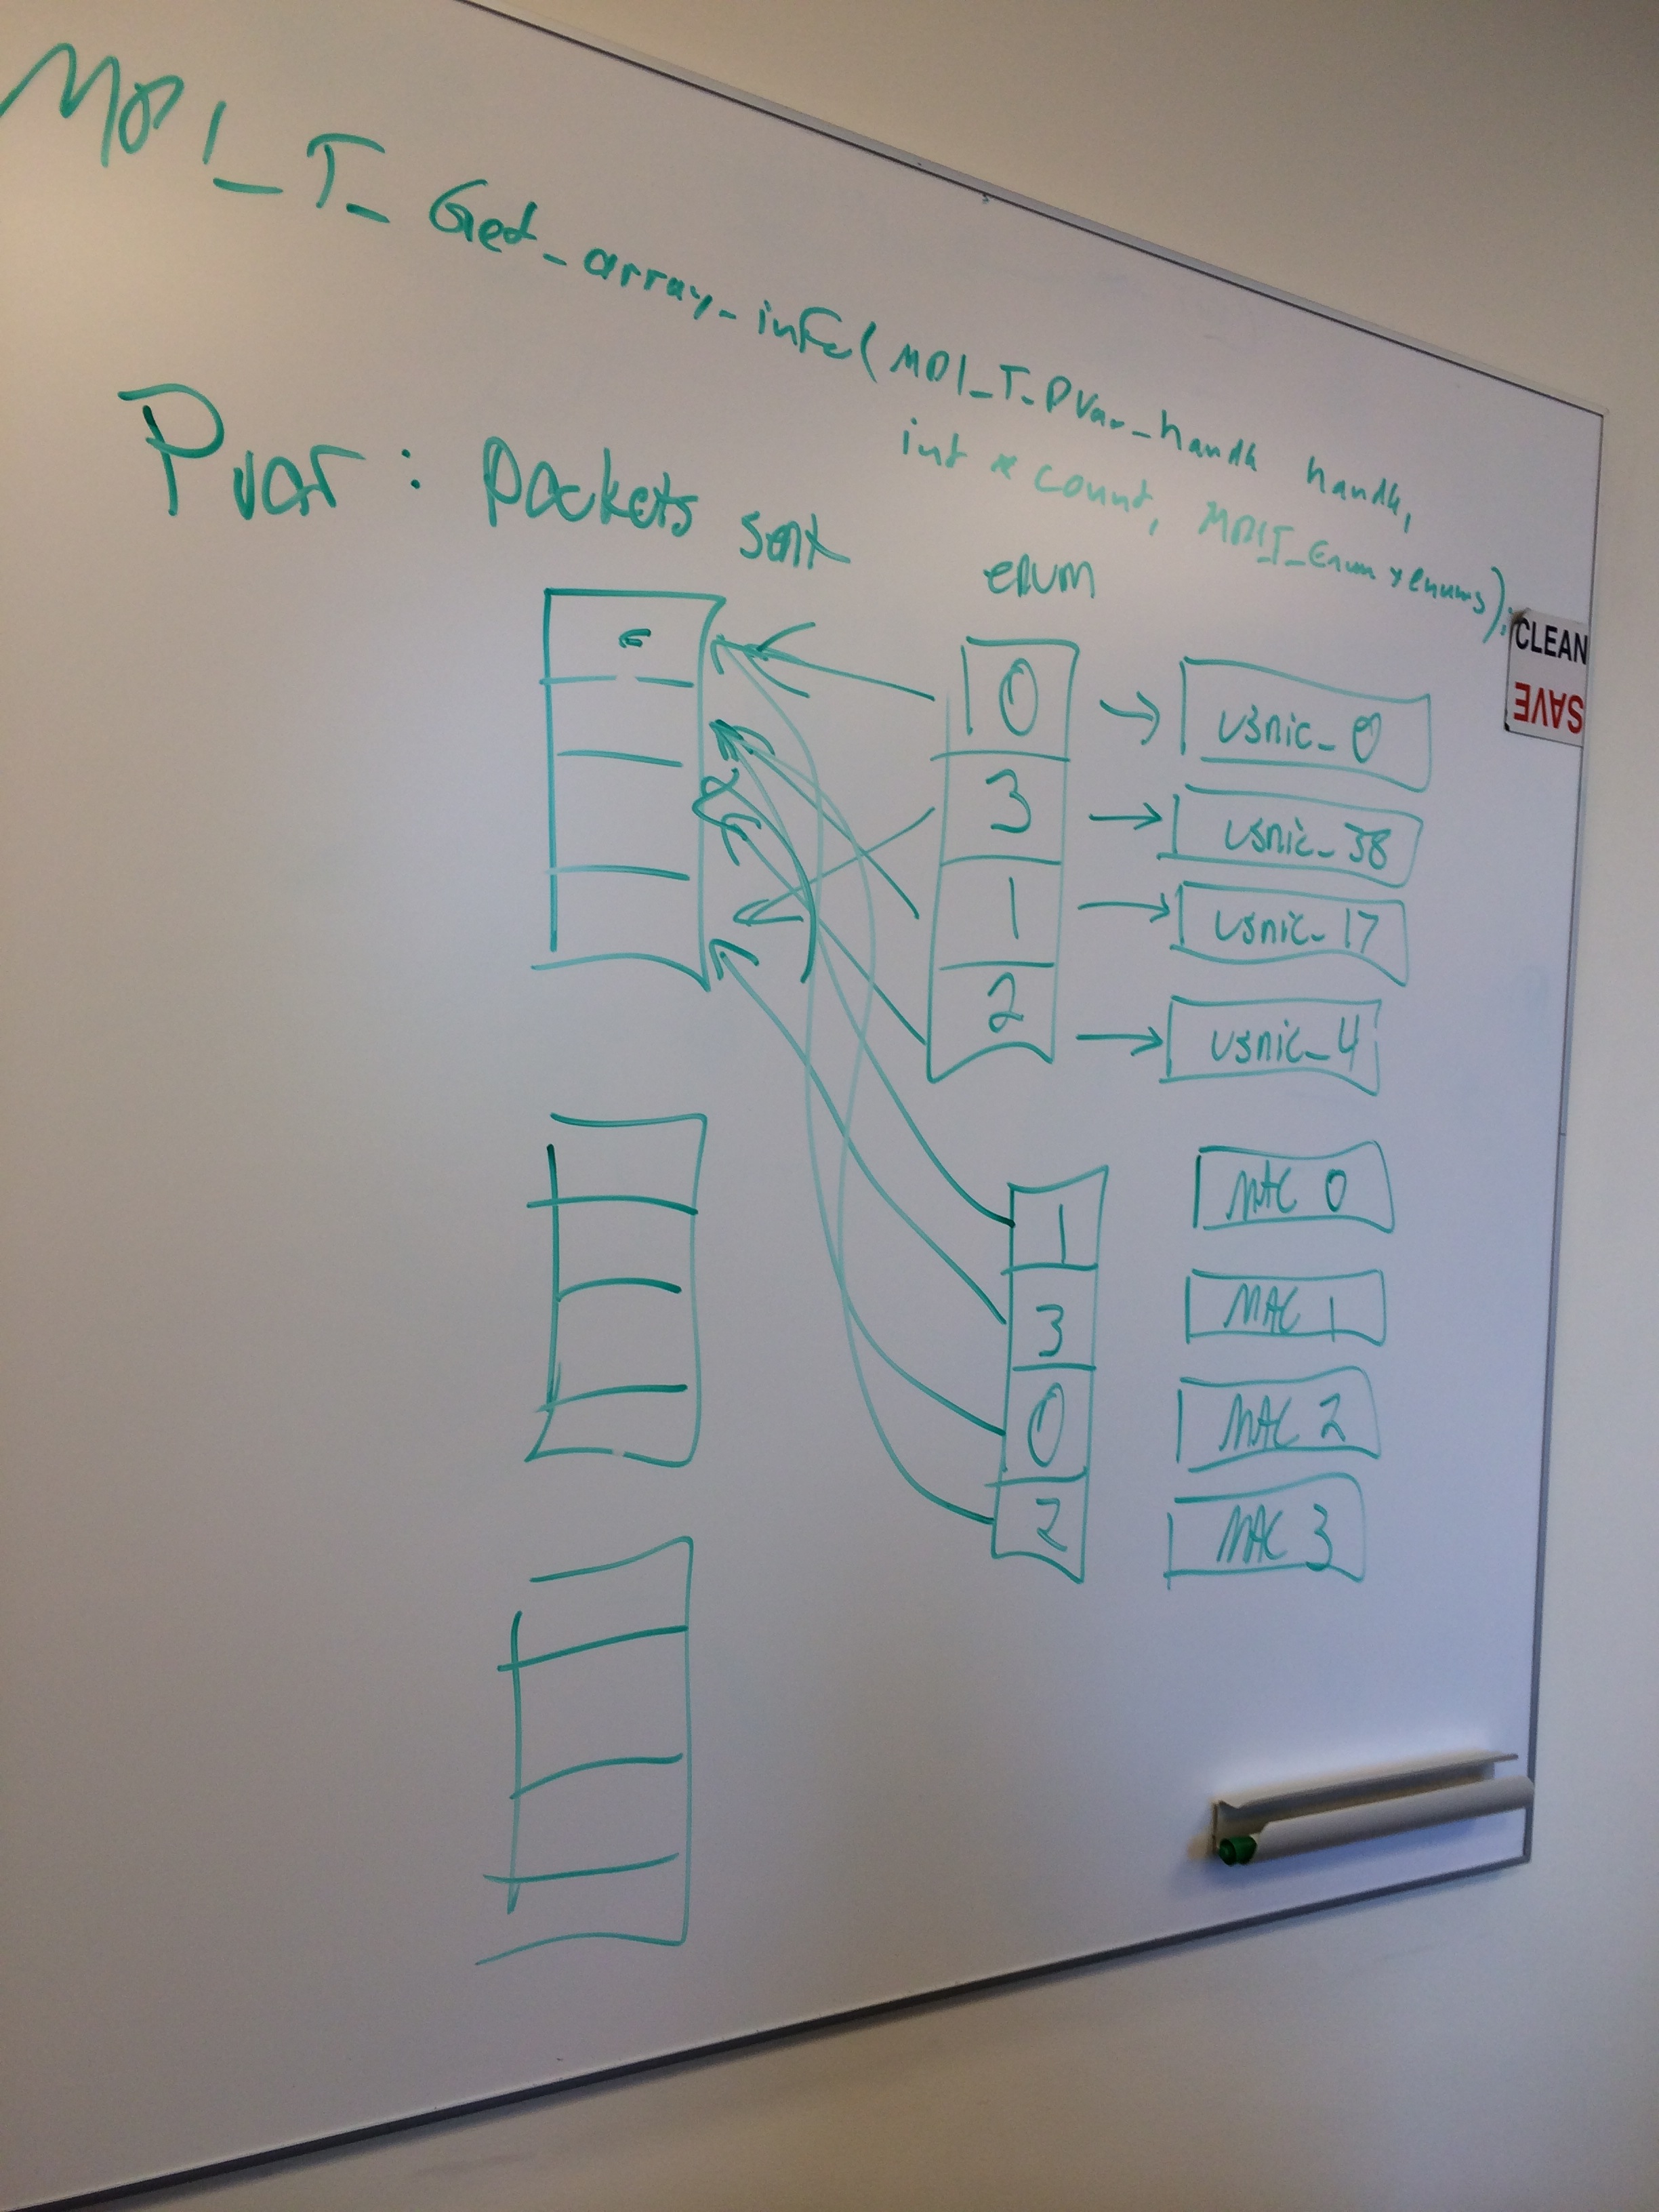 MPI_T_Get_array_info(MPI_T_Pvar_handle handle,
int *count, MPI_T_Enum *enums);
Pvar: packets sent
enum
0 usnic_0
3 usnic_38
1 usnic_17
2 usnic_4
1 MAC 0
3 MAC 1
0 MAC 2
2 MAC 3
CLEAN
SAVE